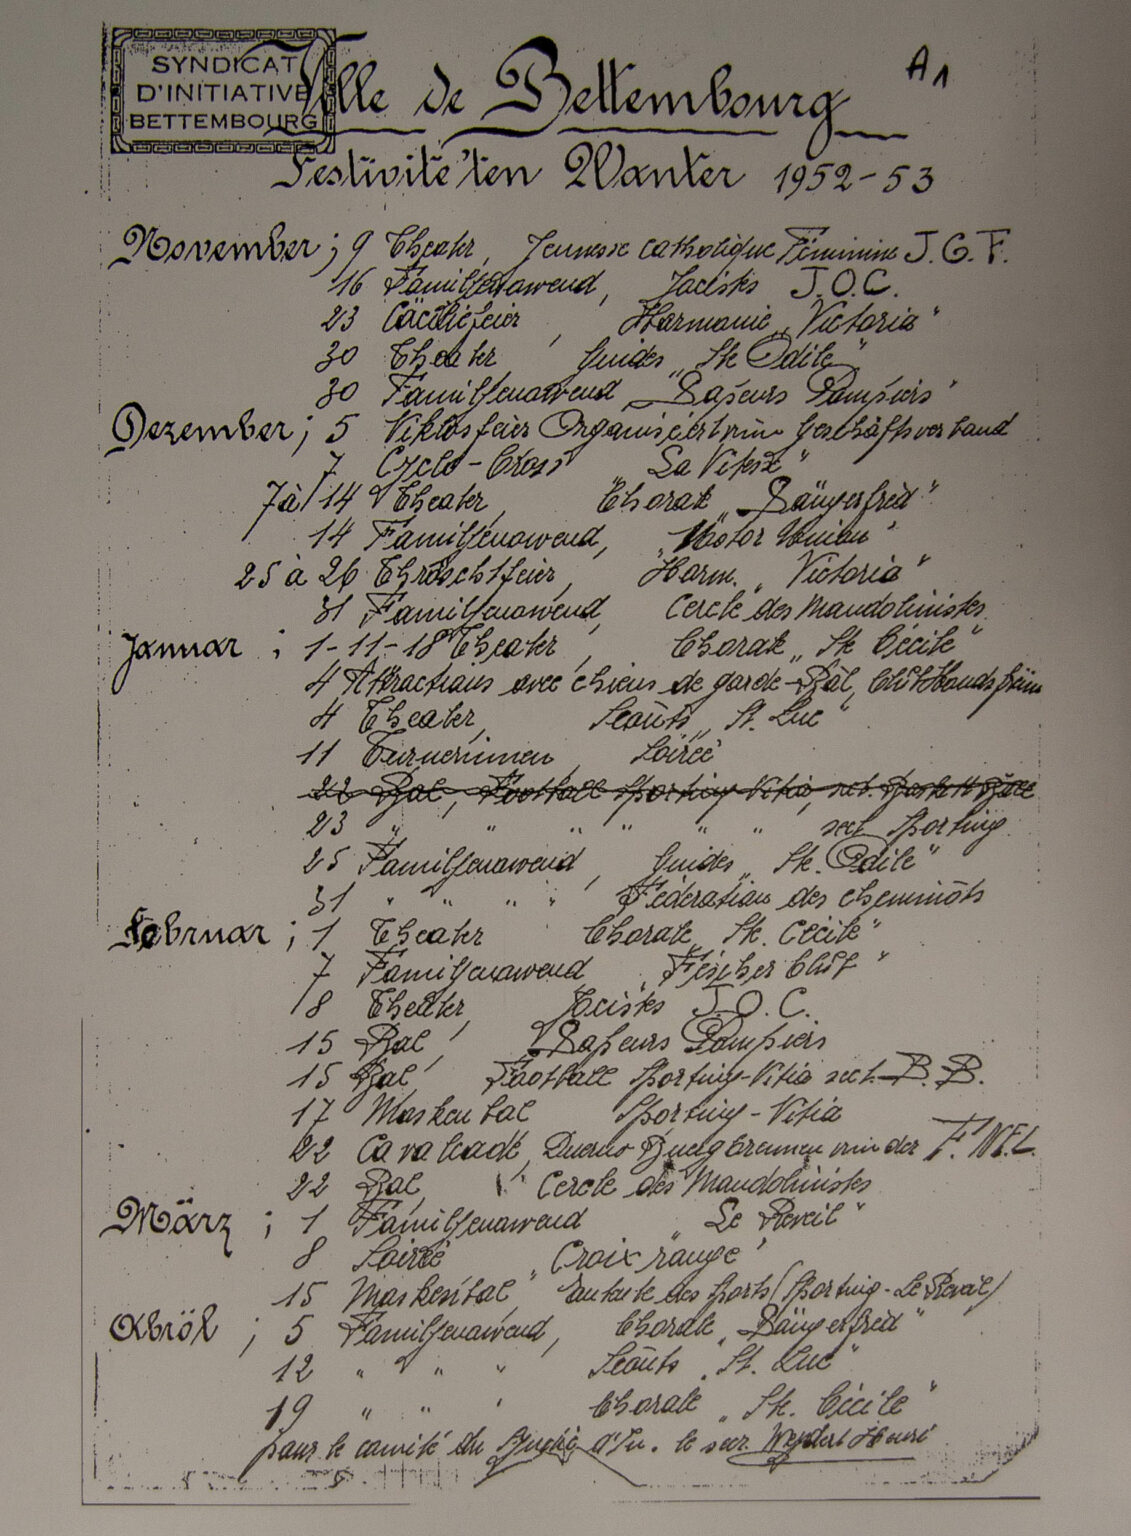 SYNDICAT
D'INITIATIVE
BETTEMBOURG
Ville de Bettembourg
A1
Festivitéten Wanter 1952-53
November ; 9 Theater, Jeunesse catholique Féminine J.C.F.
16 Familjenowend, Jacistes J.O.C.
23 Cäciliefeier, Harmonie „Victoria“
30 Theater Guides „Ste Odile“
30 Familjenowend, „Sapeurs Pompiers“
Dezember ; 5 Niklosfeier Organiséiert vum Geschäftsverband
7 Cyclo-Cross „La Vitesse“
7 à 14 Theater, Chorale „Sängerfred“
14 Familjenowend, „Motor Union“
25 à 26 Chröschtfeier, Harm. „Victoria“
31 Familjenowend, Cercle des Mandolinistes
Januar ; 1-11-18 Theater, Chorale „Ste Cécile“
4 Attractions avec chiens de garde-Bal, Club Hondsfrënn
4 Theater, Scouts „St. Luc“
11 Turnerinnen, Soirée
22 Bal, Football Sporting-Vitia, sect.
23 " " " " " " sect. Sporting
25 Familjenowend, Guides „Ste. Odile“
31 " " " " Féderation des cheminots
Februar ; 1 Theater Chorale „Ste. Cécile“
7 Familjenowend „Fëscher Club“
8 Theater, Jacistes J.O.C.
15 Bal, Sapeurs Pompiers
15 Bal, Football Sporting-Vitia sect. B.B.
17 Maskenbal Sporting-Vitia
22 Cavalcade, Duerno Buergbrennen vun der F.N.E.L.
22 Bal, Cercle des Mandolinistes
März ; 1 Familjenowend „Le Réveil“
8 Soirée „Croix rouge“
15 Maskenbal, Entente des Sports (Sporting-Le Réveil)
Abröl ; 5 Familjenowend, Chorale „Sängerfred“
12 " " " Scouts „St. Luc“
19 " " " Chorale „Ste. Cécile“
pour le comité du d'In. le secr. Henri